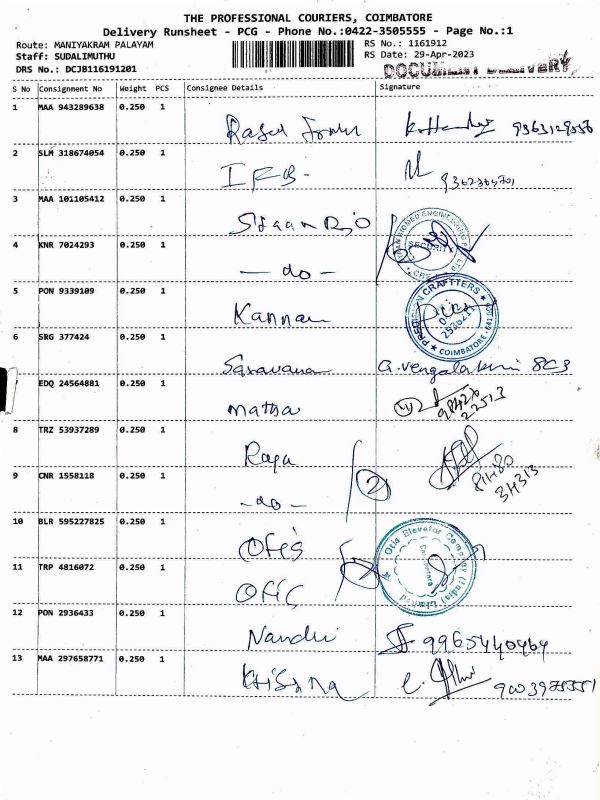 THE PROFESSIONAL COURIERS, COIMBATORE
Delivery Runsheet - PCG - Phone No.:0422-3505555 - Page No.:1
Route: MANIYAKRAM PALAYAM RS No.: 1161912
Staff: SUDALIMUTHU RS Date: 29-Apr-2023
DRS No.: DCJB116191201 DOCUMENT DELIVERY
S No Consignment No Weight PCS Consignee Details Signature
1 MAA 943289638 0.250 1
2 SLM 318674054 0.250 1 IFB-
3 MAA 101105412 0.250 1
4 KNR 7024293 0.250 1 - do -
5 PON 9339109 0.250 1 Kannan
PRECISION CRAFTTERS
COIMBATORE
6 SRG 377424 0.250 1 Saravana
EDQ 24564881 0.250 1 matha
8 TRZ 53937289 0.250 1 Raja
9 CNR 1558118 0.250 1 - do - 2
10 BLR 595227825 0.250 1 Otis
Otis Elevator Company (India) Limited
11 TRP 4816072 0.250 1 Otis
12 PON 2936433 0.250 1 Nandhi 9965440464
13 MAA 297658771 0.250 1 Krisana